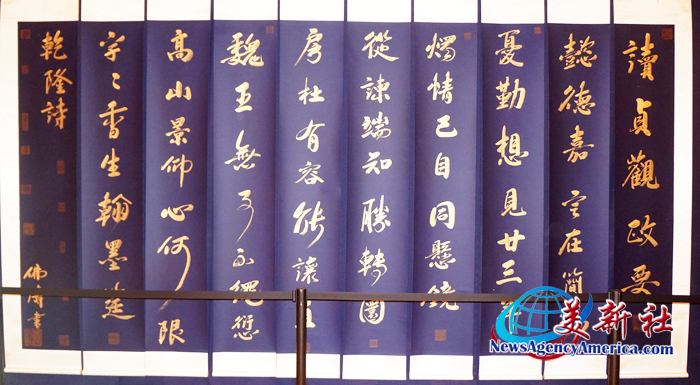 讀貞觀政要
懿德嘉言在簡
憂勤想見廿三年
燭情已自同懸鏡
從諫端知勝轉圜
房杜有容能讓直
魏王無事不繩愆
高山景仰心何限
字〻香生翰墨筵
乾隆詩
書
美新社
NewsAgencyAmerica.com